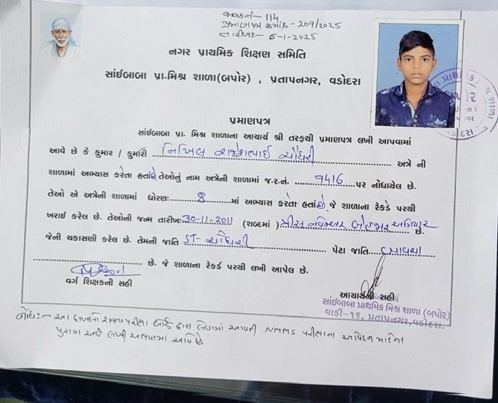 જાવકનં- 114
પ્રમાણપત્ર ક્રમાંક- 209/2025
તારીખ:- 6-1-2025
નગર પ્રાથમિક શિક્ષણ સમિતિ
સાંઈબાબા પ્રા.મિશ્ર શાળા(બપોર) , પ્રતાપનગર, વડોદરા
પ્રમાણપત્ર
સાંઈબાબા પ્રા. મિશ્ર શાળાના આચાર્ય શ્રી તરફથી પ્રમાણપત્ર લખી આપવામાં
આવે છે કે કુમાર / કુમારી નિખિલ રાજેશભાઈ ચૌધરી અત્રે ની
શાળામાં અભ્યાસ કરતા હતા તેઓનું નામ અત્રેની શાળામાં જ.ર.નં. 9416 પર નોંધાયેલ છે.
તેઓ એ અત્રેની શાળામાં ધોરણ: 8 માં અભ્યાસ કરતા હતા જે શાળાના રેકર્ડ પરથી
ખરાઈ કરેલ છે. તેઓની જન્મ તારીખ: 30-11-2011 (શબ્દમાં ) ત્રીસ નવેમ્બર બેહજાર અગિયાર છે.
જેની ચકાસણી કરેલ છે. તેમની જાતિ ST-ચૌધરી પેટા જાતિ
છે. જે શાળાના રેકર્ડ પરથી લખી આપેલ છે.
વર્ગ શિક્ષકની સહી
આચાર્યની સહી
સાંઈબાબા પ્રાથમિક મિશ્ર શાળા (બપોર)
વાડી-૧૬, પ્રતાપનગર,વડોદરા.
નોંધ:- આ દાખલો રાજ્ય પરીક્ષા બોર્ડ દ્વારા લેવામાં આવતી NMMS પરીક્ષાના આવેદન માટેના
પુરાવા અર્થે લખી આપવામાં આવે છે